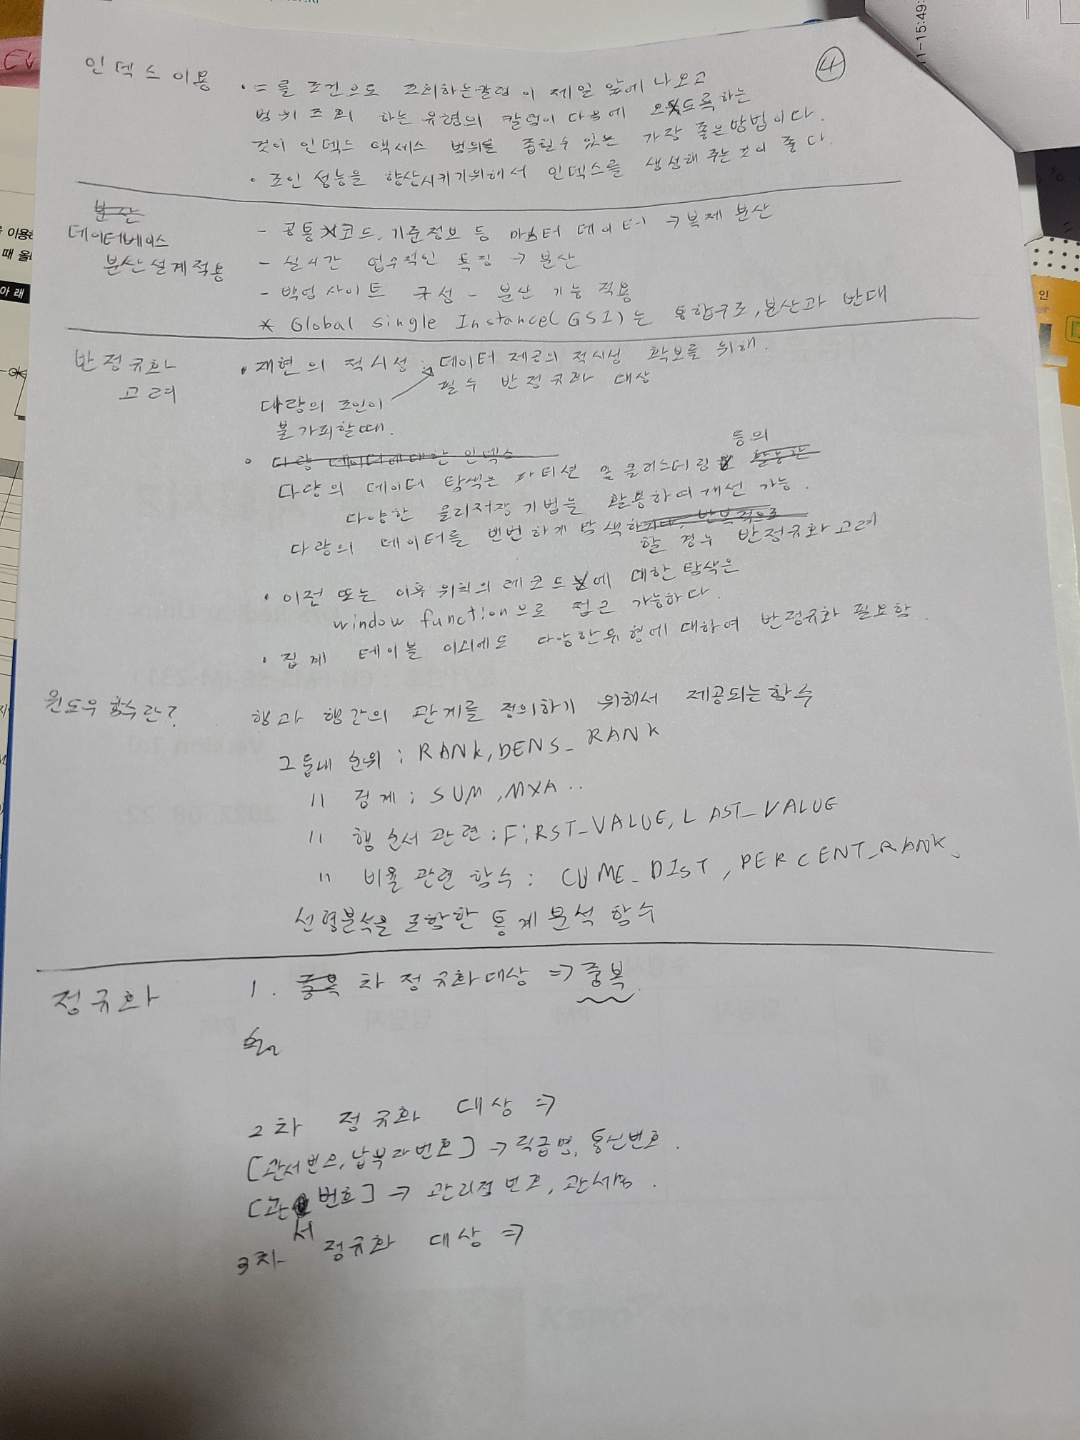 ④
인덱스 이용
• = 를 조건으로 조회하는 칼럼이 제일 앞에 나오고
범위 조회 하는 유형의 칼럼이 다음에 오도록 하는
것이 인덱스 액세스 범위를 좁힐 수 있는 가장 좋은 방법이다.
• 조인 성능을 향상시키기 위해서 인덱스를 생성해 주는 것이 좋다.
분산
데이터베이스
분산 설계 적용
- 공통 코드, 기준정보 등 마스터 데이터 → 복제 분산
- 실시간 업수적인 특징 → 분산
- 백업 사이트 구성 - 분산 기능 적용
* Global single Instance(GSI)는 통합구조, 분산과 반대
반정규화
고려
• 재현의 적시성 : 데이터 제공의 적시성 확보를 위해.
필수 반정규화 대상
다량의 조인이
불가피할때.
• 다량 데이터에 대한 인덱스
등의
다량의 데이터 탐색은 파티션 및 클러스터링
다양한 물리저장 기법을 활용하여 개선 가능.
다량의 데이터를 빈번하게 탐색하거나, 반복적으로
할 경우 반정규화 고려
• 이전 또는 이후 위치의 레코드에 대한 탐색은
window function으로 접근 가능하다.
• 집계 테이블 이외에도 다양한 유형에 대하여 반정규화 필요함
윈도우 함수란?
행과 행간의 관계를 정의하기 위해서 제공되는 함수
그룹내 순위 : RANK, DENS_RANK
〃 집계 : SUM, MXA ..
〃 행 순서 관련 : FiRST_VALUE, LAST_VALUE
〃 비율 관련 함수 : CUME_DIST, PERCENT_RANK.
선형분석을 포함한 통계 분석 함수
정규화
1. 중복 차 정규화 대상 ⇒ 중복
2차 정규화 대상 ⇒
[관서번호, 납부자번호] → 직급명, 통신번호.
[관서번호] → 관리점번호, 관서명.
3차 정규화 대상 ⇒
이용
때 올
아 래
인
1-15:49: